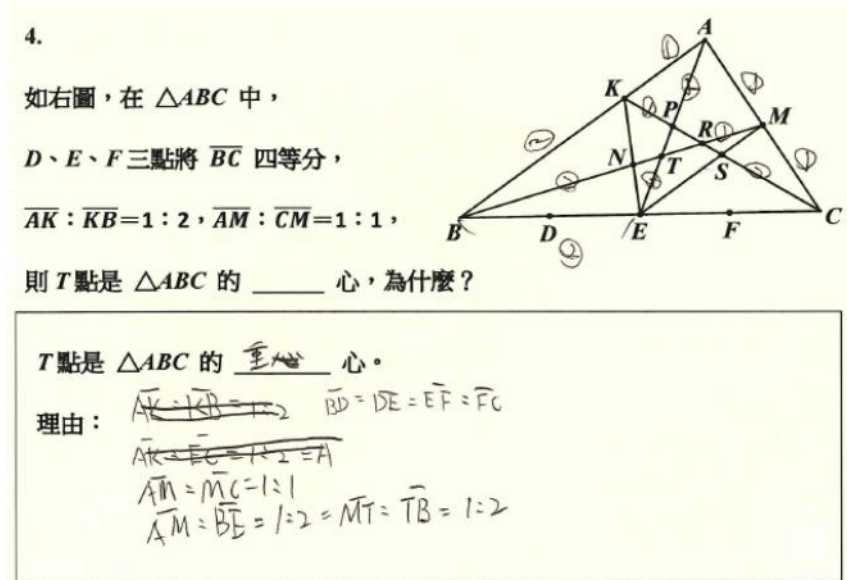 4.
如右圖，在 △ABC 中，
D、E、F 三點將 BC 四等分，
AK：KB=1：2，AM：CM=1：1，
則 T 點是 △ABC 的 ______ 心，為什麼？
A
K
P
M
R
N
T
S
B
D
E
F
C
①
①
①
①
①
②
②
②
②
T 點是 △ABC 的 重心 心。
理由：
AK：KB=1：2 BD=DE=EF=FC
AM：MC=1：1
AM：BE=1：2=MT：TB=1：2